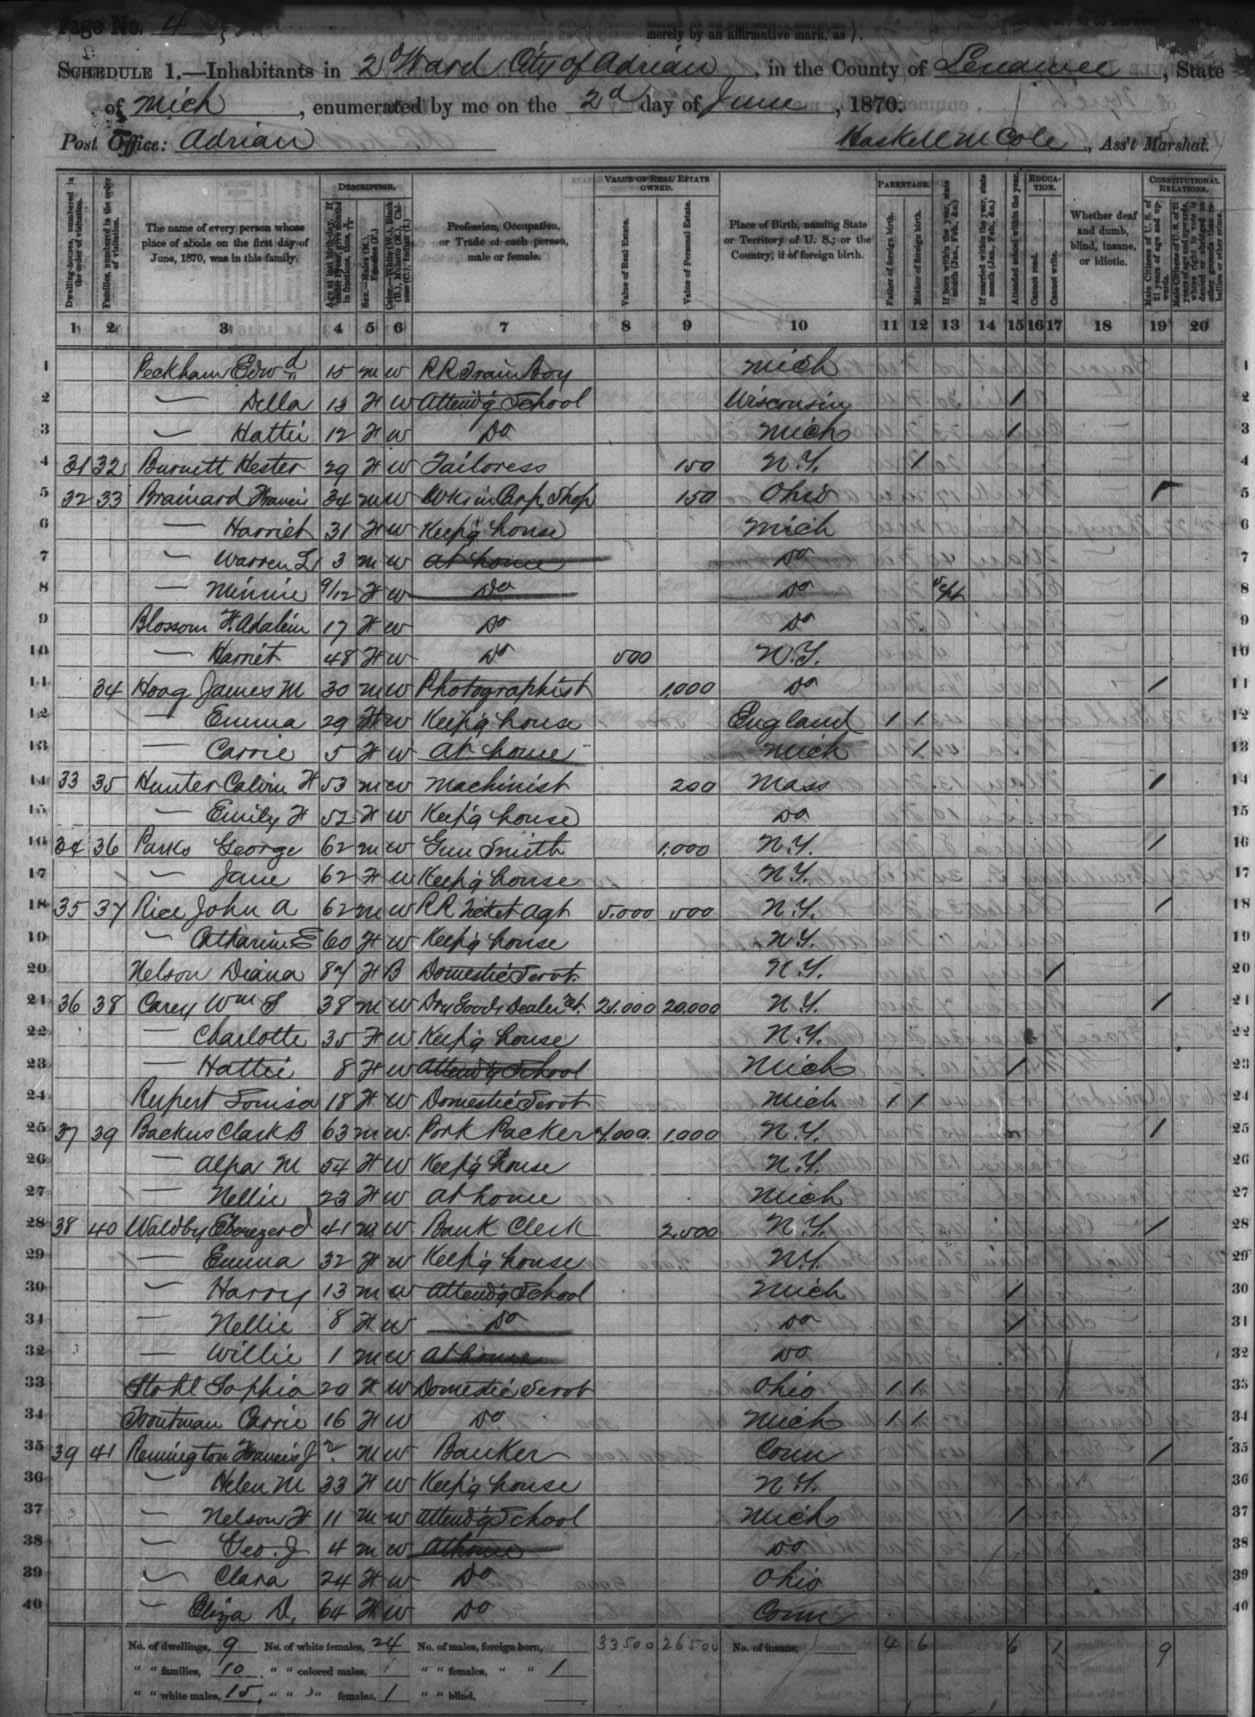 Page No. 4
merely by an affirmative mark, as /.
SCHEDULE 1.—Inhabitants in 2d Ward City of Adrian, in the County of Lenawee, State
of Mich, enumerated by me on the 2d day of June, 1870.
Post Office: Adrian Haskell M Cole, Ass't Marshal.
Dwelling-houses, numbered in the order of visitation.
Families, numbered in the order of visitation.
The name of every person whose place of abode on the first day of June, 1870, was in this family.
DESCRIPTION.
Sex.—Males (M.), Females (F.)
Color.—White (W.), Black (B.), Mulatto (M.), Chinese (C.), Indian (I.)
Profession, Occupation, or Trade of each person, male or female.
VALUE OF REAL ESTATE OWNED.
Value of Real Estate.
Value of Personal Estate.
Place of Birth, naming State or Territory of U. S.; or the Country, if of foreign birth.
PARENTAGE.
Father of foreign birth.
Mother of foreign birth.
If born within the year, state month (Jan., Feb., &c.)
If married within the year, state month (Jan., Feb., &c.)
Attended school within the year.
EDUCATION.
Cannot read.
Cannot write.
Whether deaf and dumb, blind, insane, or idiotic.
CONSTITUTIONAL RELATIONS.
1 2 3 4 5 6 7 8 9 10 11 12 13 14 15 16 17 18 19 20
1 Peckham Edwd 15 M W RR Train Boy Mich 1
2 — Della 13 F W Attend'g School Wisconsin / 2
3 — Hattie 12 F W Do Mich / 3
4 31 32 Burnett Hester 29 F W Tailoress 150 N.Y. / 4
5 32 33 Brainard Francis 34 M W Wks in Carp. Shop 150 Ohio / 5
6 — Harriet 31 F W Keep'g house Mich 6
7 — Warren L 3 M W At home Do 7
8 — Minnie 9/12 F W Do Do Sept 8
9 Blossom F. Adalein 17 F W Do Do 9
10 — Harriet 48 F W Do 500 N.Y. 10
11 34 Hoag James M 30 M W Photographist 1,000 Do / 11
12 — Emma 29 F W Keep'g house England / / 12
13 — Carrie 5 F W At home Mich / 13
14 33 35 Hunter Calvin F 53 M W Machinist 200 Mass / 14
15 — Emily F 52 F W Keep'g house Do 15
16 34 36 Parks George 62 M W Gun Smith 1,000 N.Y. / 16
17 — Jane 62 F W Keep'g house N.Y. 17
18 35 37 Rice John A 62 M W RR Ticket Agt 5,000 500 N.Y. / 18
19 — Catharine E 60 F W Keep'g house N.Y. 19
20 Nelson Diana 87 F B Domestic Servt. N.Y. / 20
21 36 38 Carey Wm S 38 M W Dry Goods Dealer Ret. 21.000 20.000 N.Y. / 21
22 — Charlotte 35 F W Keep'g house N.Y. 22
23 — Hattie 8 F W Attend'g School Mich / 23
24 Rupert Louisa 18 F W Domestic Servt Mich / / 24
25 37 39 Backus Clark B 63 M W Pork Packer 7,000. 1,000 N.Y. / 25
26 — Alpa M 54 F W Keep'g house N.Y. 26
27 — Nellie 23 F W At home Mich 27
28 38 40 Waldby Ebenezer D 41 M W Bank Clerk 2,500 N.Y. / 28
29 — Emma 32 F W Keep'g house N.Y. 29
30 — Harry 13 M W Attend'g School Mich / 30
31 — Nellie 8 F W Do Do / 31
32 — Willie 1 M W At home Do 32
33 Stohl Sophia 20 F W Domestic Servt Ohio / / 33
34 Troutman Carrie 16 F W Do Mich / / 34
35 39 41 Remington Francis J ? M W Banker Conn / 35
36 — Helen M 33 F W Keep'g house N.Y. 36
37 — Nelson F 11 M W Attend'g School Mich / 37
38 — Geo. J 4 M W At home Do 38
39 — Clara 24 F W Do Ohio 39
40 — Eliza D. 64 F W Do Conn 40
No. of dwellings, 9 No. of white females, 24 No. of males, foreign born, 33500 26500 No. of insane, 4 6 6 1 9
" " families, 10 " " colored males, / " " females, " " 1
" " white males, 15 " " " females, 1 " " blind,